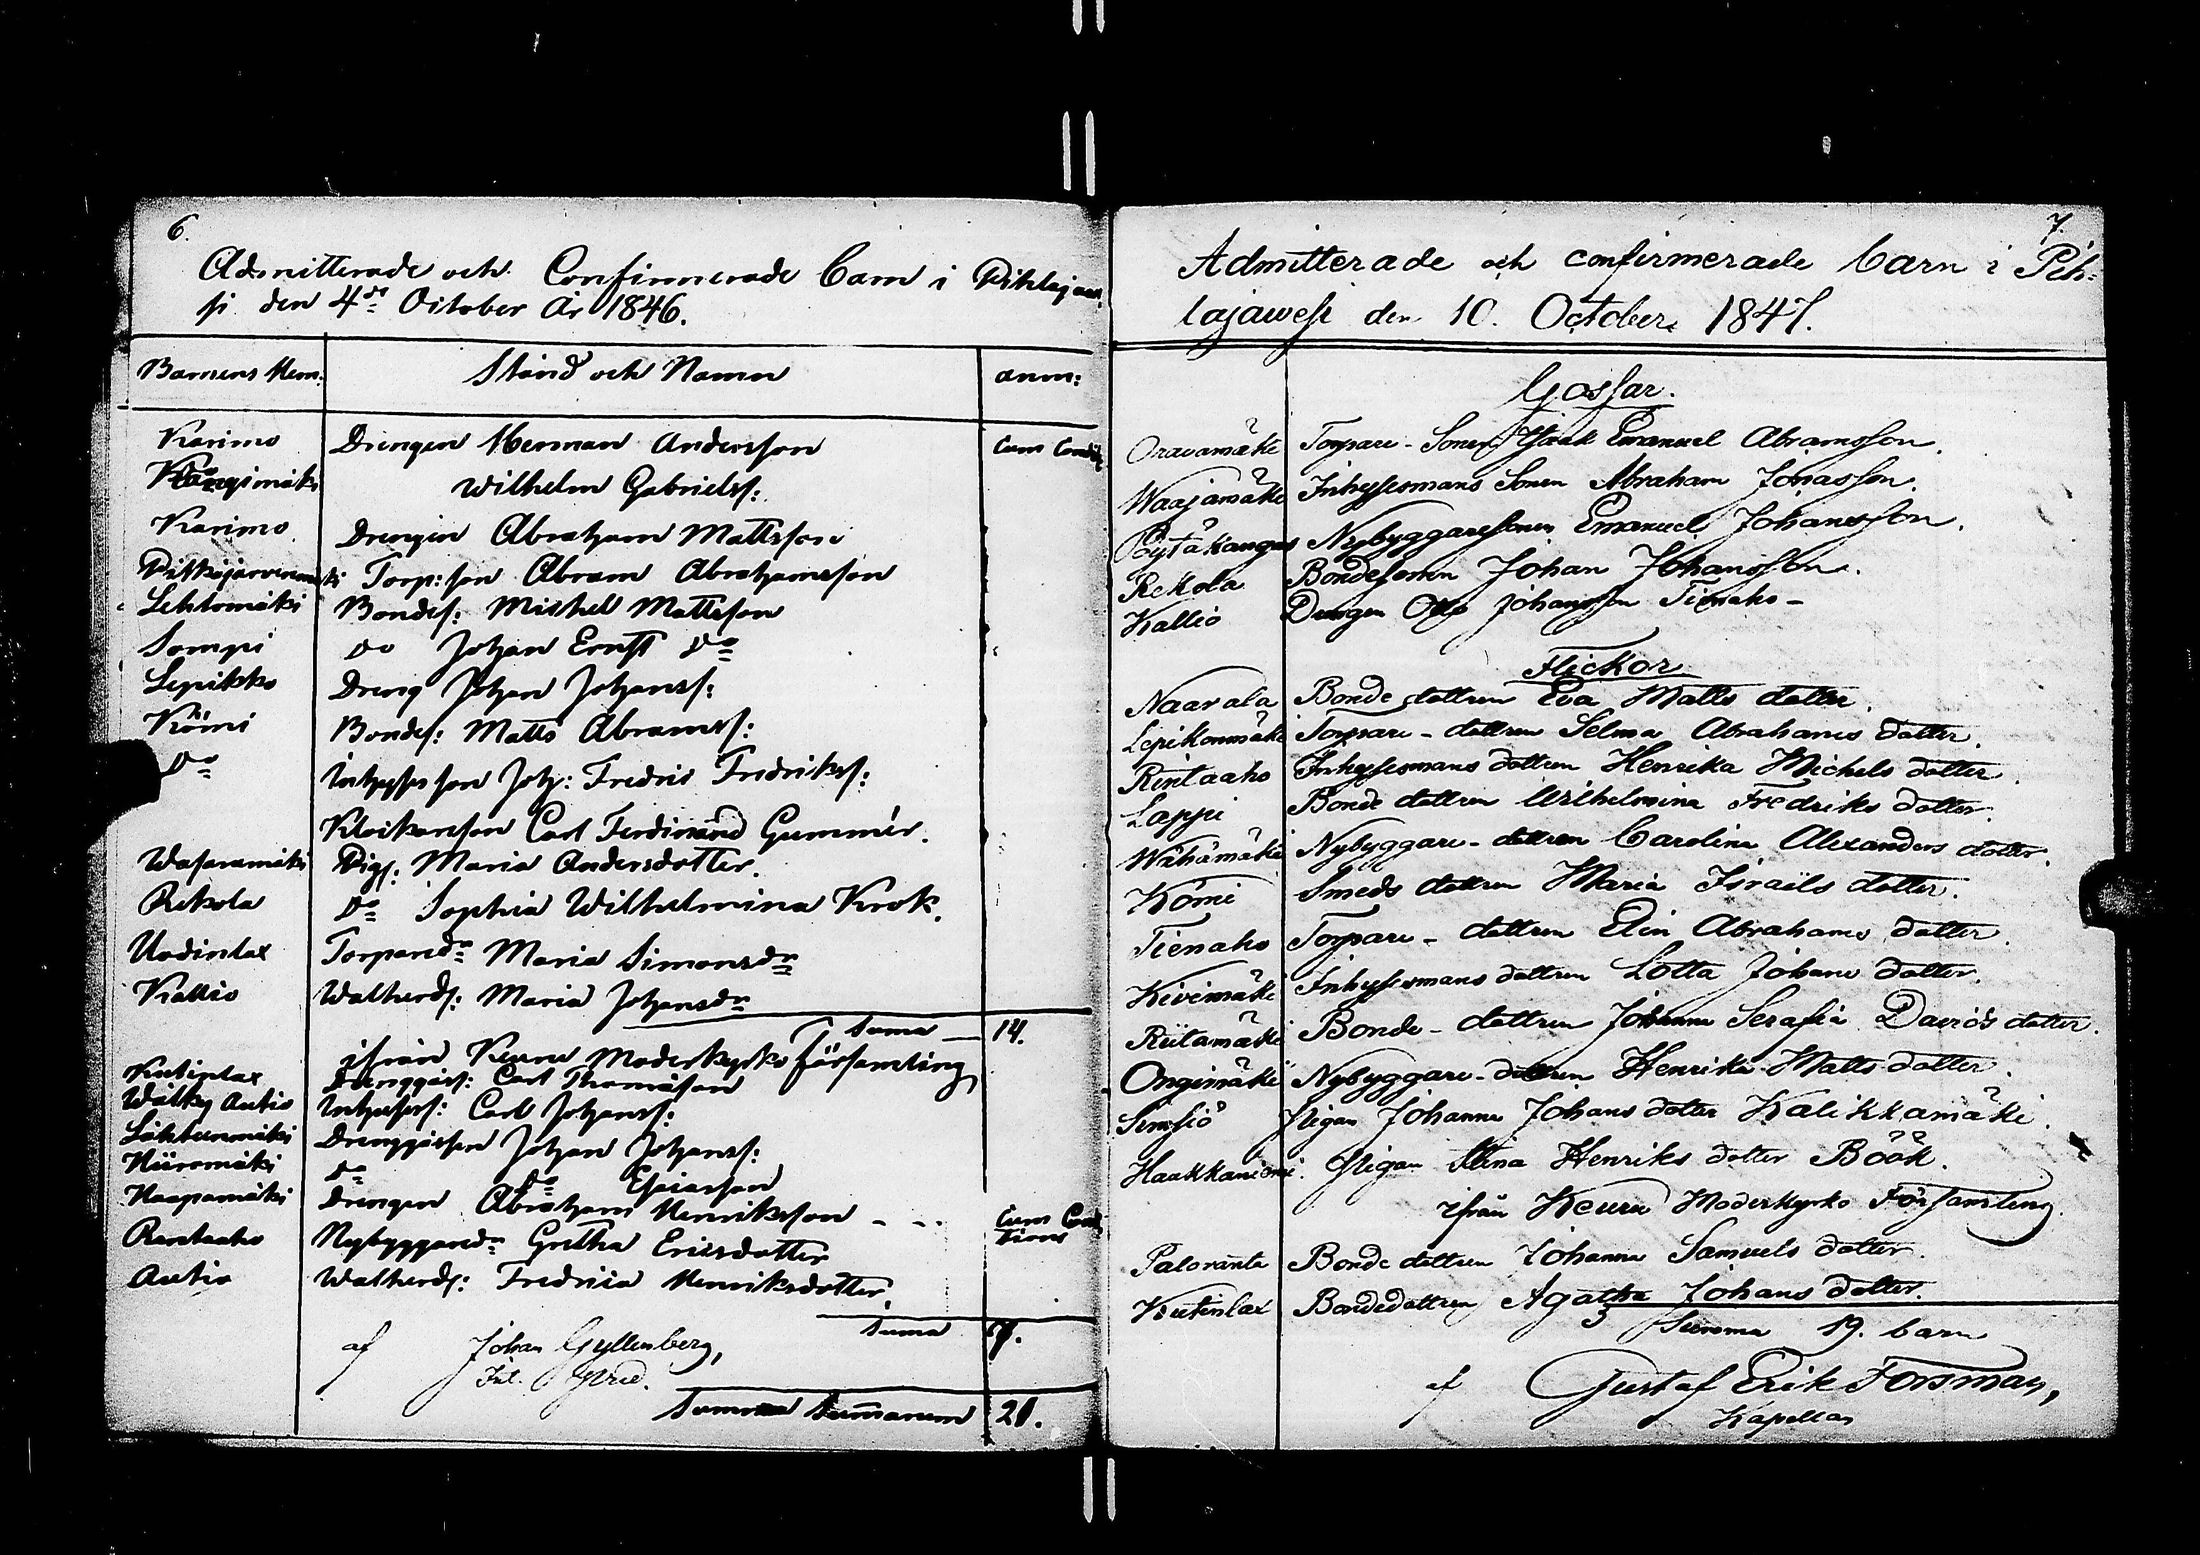 6.
Admitterade och Confirmerade Barn i Pihlajawe
si den 4de October År 1846.
Barnens Hem: Stånd och Namn anm:
Karimo Drengen Herman Andersson Cum Condit
Kangimäki Wilhelm Gabrielss:
Karimo Drengen Abraham Mattsson
Pitkäjärvenmäki Torp:son Abram Abrahamsson
Lehtomäki Bondes: Michel Mattsson
Sompi do Johan Ernst Do
Lepikko Dreng Johan Johanss:
Kömi Bondes: Matts Abramss:
Do Inhyses son Joh: Fredric Fredrikss:
Klockarsson Carl Ferdinand Gummér.
Wasaramäki Pigs: Maria Andersdotter.
Rekola Do Sophia Wilhelmina Krok.
Uodinlax Torpared:r Maria Simonsdr
Kallio Walherds: Maria Johansdr
Suma 14.
ifrån Keuru Moderkyrko Församling
Kutinlax Drenggåss: Carl Thomasson
Wälky Autio Inhysess: Carl Johanss:
Lähteenmäki Drenggåsson Johan Johanss:
Niiromäki Do Do Esaiasson
Haapamäki Drengen Abraham Henriksson - - - Cum Condi
tions
Rantaaho Nybyggaredr Gretha Ericsdotter
Autio Walherds: Fredrica Henriksdotter.
Suma 7.
af Johan Gyllenberg,
Summa Summarum 21.
7.
Admitterade och confirmerade barn i Pih-
lajawesi den 10. October 1847.
Gossar.
Oravamäki Torpare-Sonen Isaak Emanuel Abramsson.
Waajamäki Inhysesmans Sonen Abraham Jonasson.
Pöytäkangas Nybyggaresonen Emanuel Johansson.
Rekola Bondesonen Johan Johansson.
Kallio Drengen Otto Johansson Tienaho-
Flickor
Naarala Bonde dottren Eva Matts dotter.
Lepikonmäki Torpare-dottren Selma Abrahams dotter.
Rintaaho Inhysesmans dottren Henrika Michels dotter.
Lappi Bonde dottren Wilhelmina Fredriks dotter.
Wähämäki Nybyggare-dottren Carolina Alexanders dotter.
Kömi Smeds dottren Maria Israëls dotter.
Tienaho Torpare-dottren Elin Abrahams dotter.
Kivimäki Inhysesmans dottren Lotta Johans dotter.
Riitamäki Bonde-dottren Johanna Serafia Davids dotter.
Ongimäki Nybyggare-dottren Henrika Matts dotter.
Simsiö Pigan Johanna Johans dotter Kalikkamäki.
Haakkaniemi. Pigan Stina Henriks dotter Böök.
ifrån Keuru Moderkyrko Församling.
Paloranta Bonde dottren Johanna Samuels dotter.
Kutinlax Bondedottren Agatha Johans dotter.
Summa 19. barn
af Gustaf Erik Forsman,
Kapellan